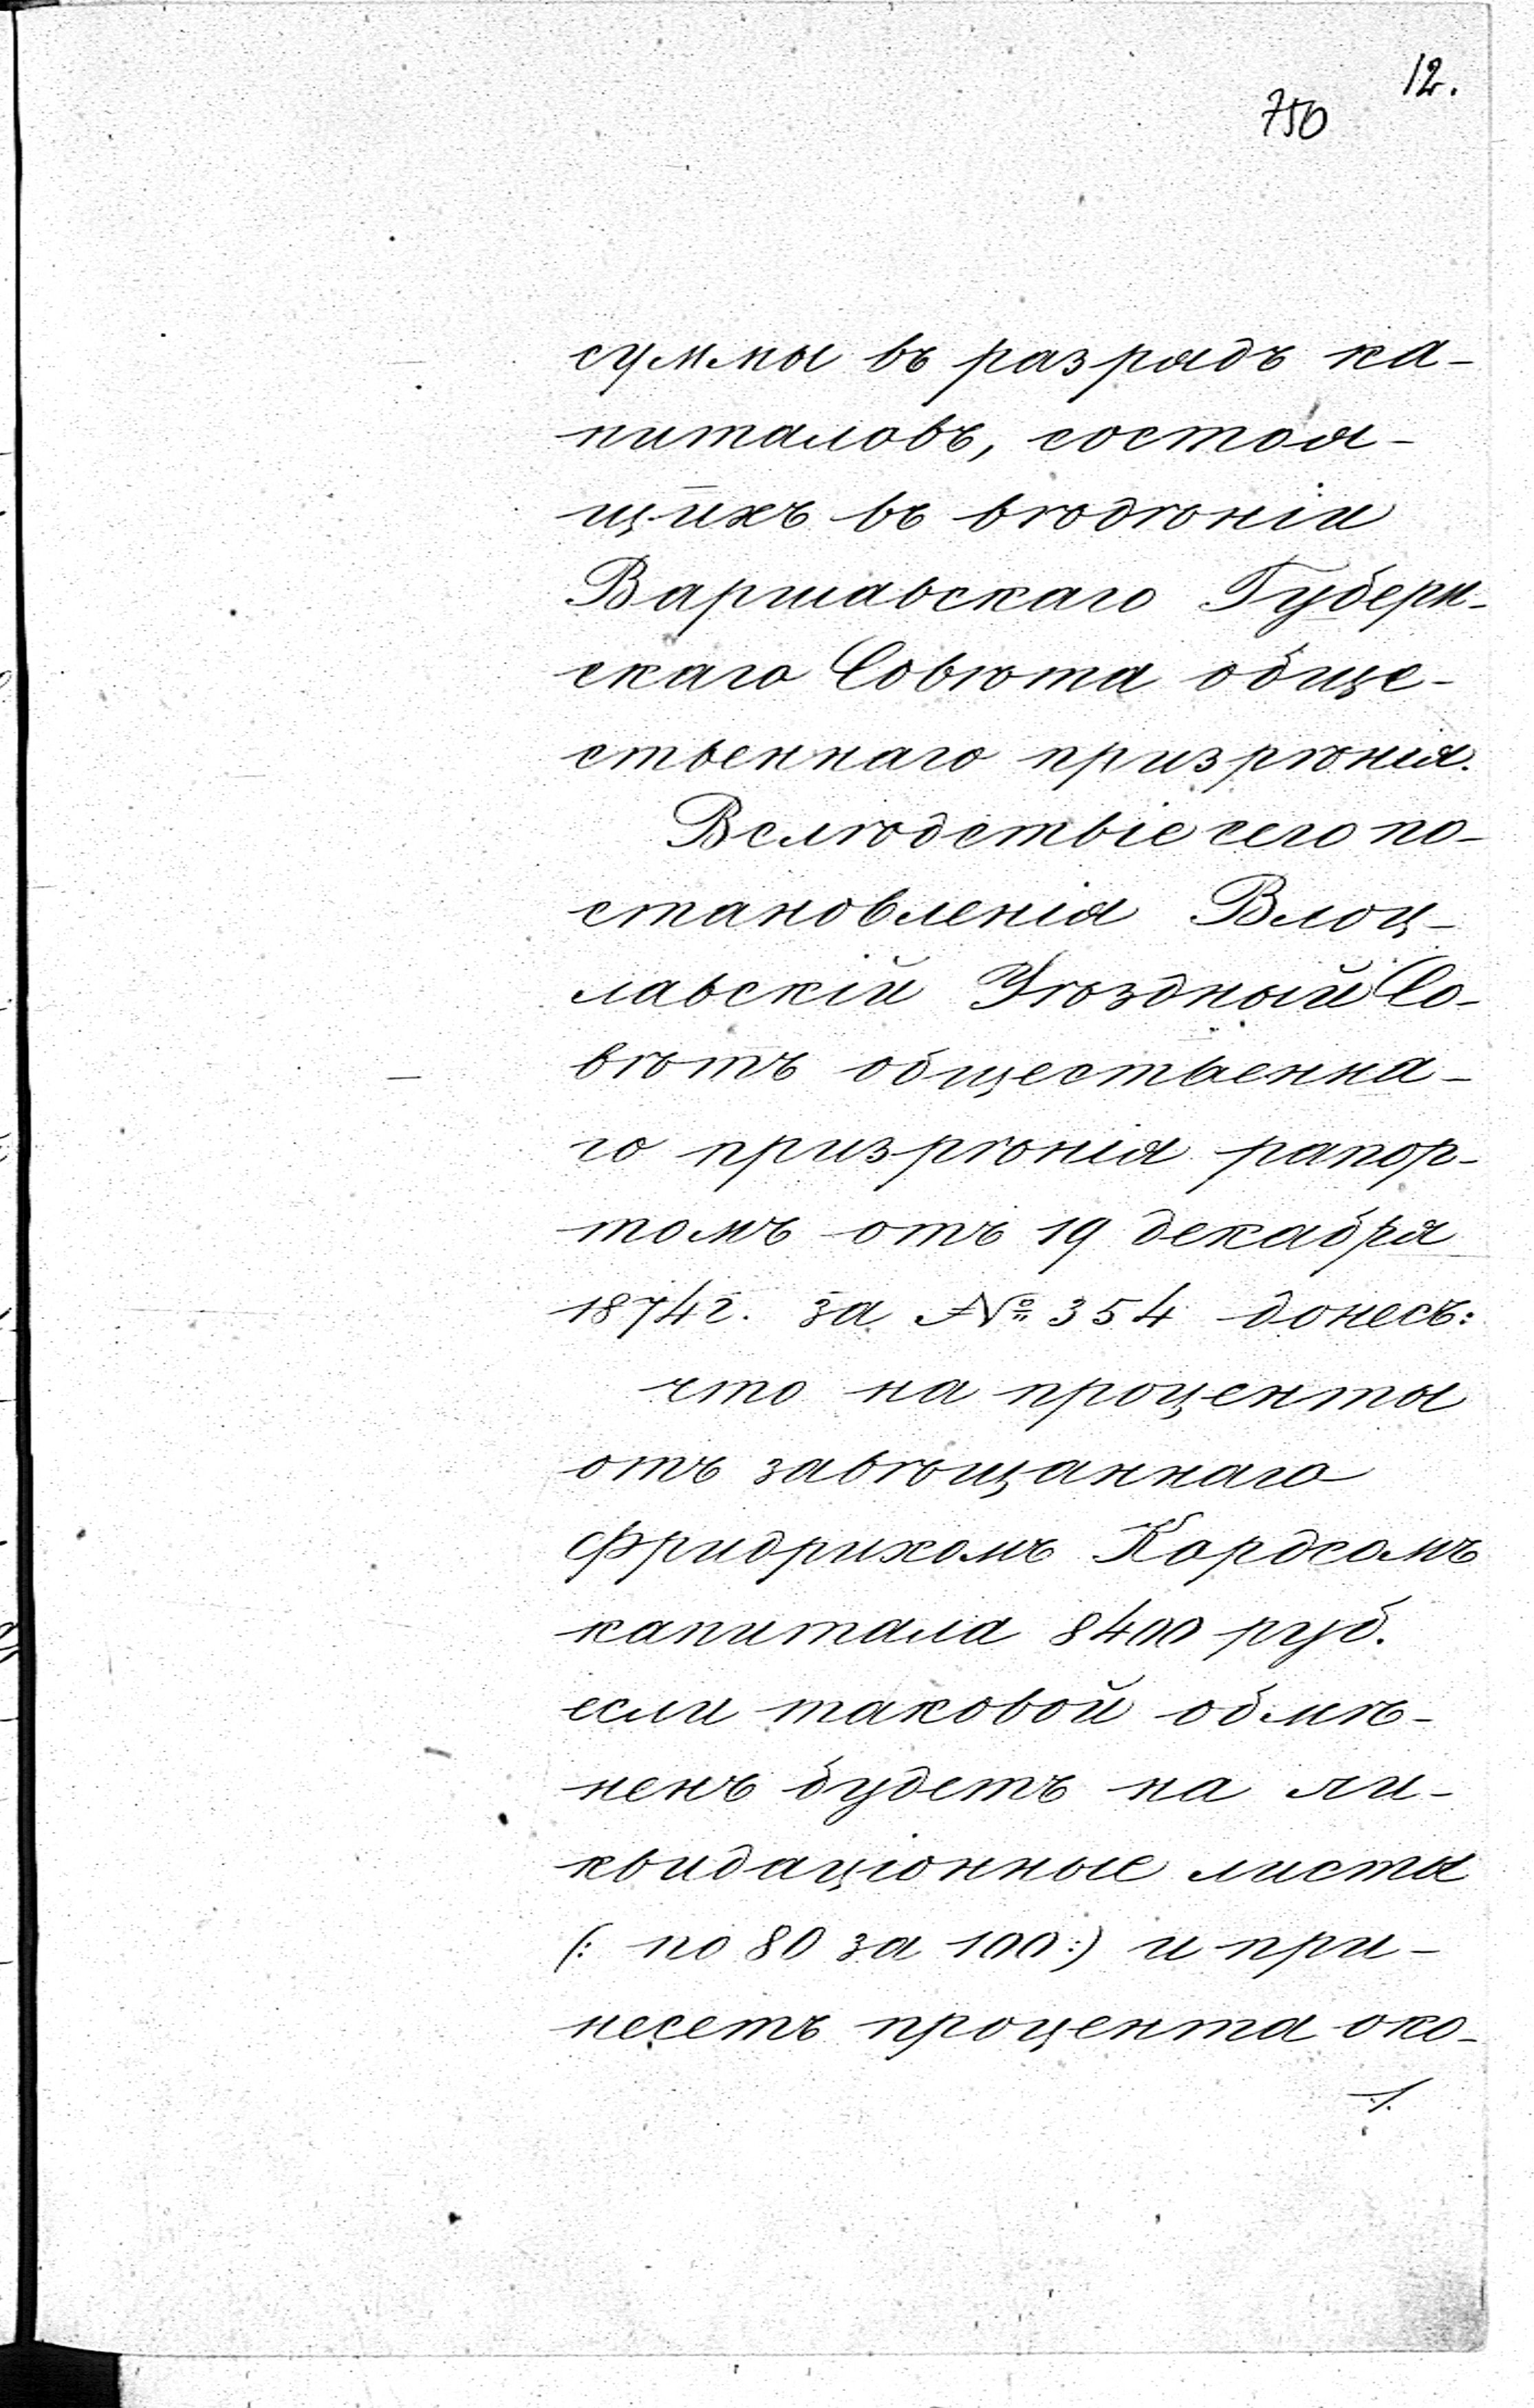 12.
750
суммы въ разрядъ ка-
питаловъ, состоя-
щихъ въ вѣдѣніи
Варшавскаго Губерн-
скаго Совѣта обще-
ственнаго призрѣнія.
Вслѣдствіе сего по-
становленія Влоц-
лавскій Уѣздный Со-
вѣтъ общественна-
го призрѣнія рапор-
томъ отъ 19 декабря
1874 г. за № 354 донесъ:
что на проценты
отъ завѣщаннаго
Фридрихомъ Кордсомъ
капитала 8400 руб.
если таковой обмѣ-
ненъ будетъ на ли-
квидаціонные листы
(: по 80 за 100 :) и при-
несетъ процента око-
./.